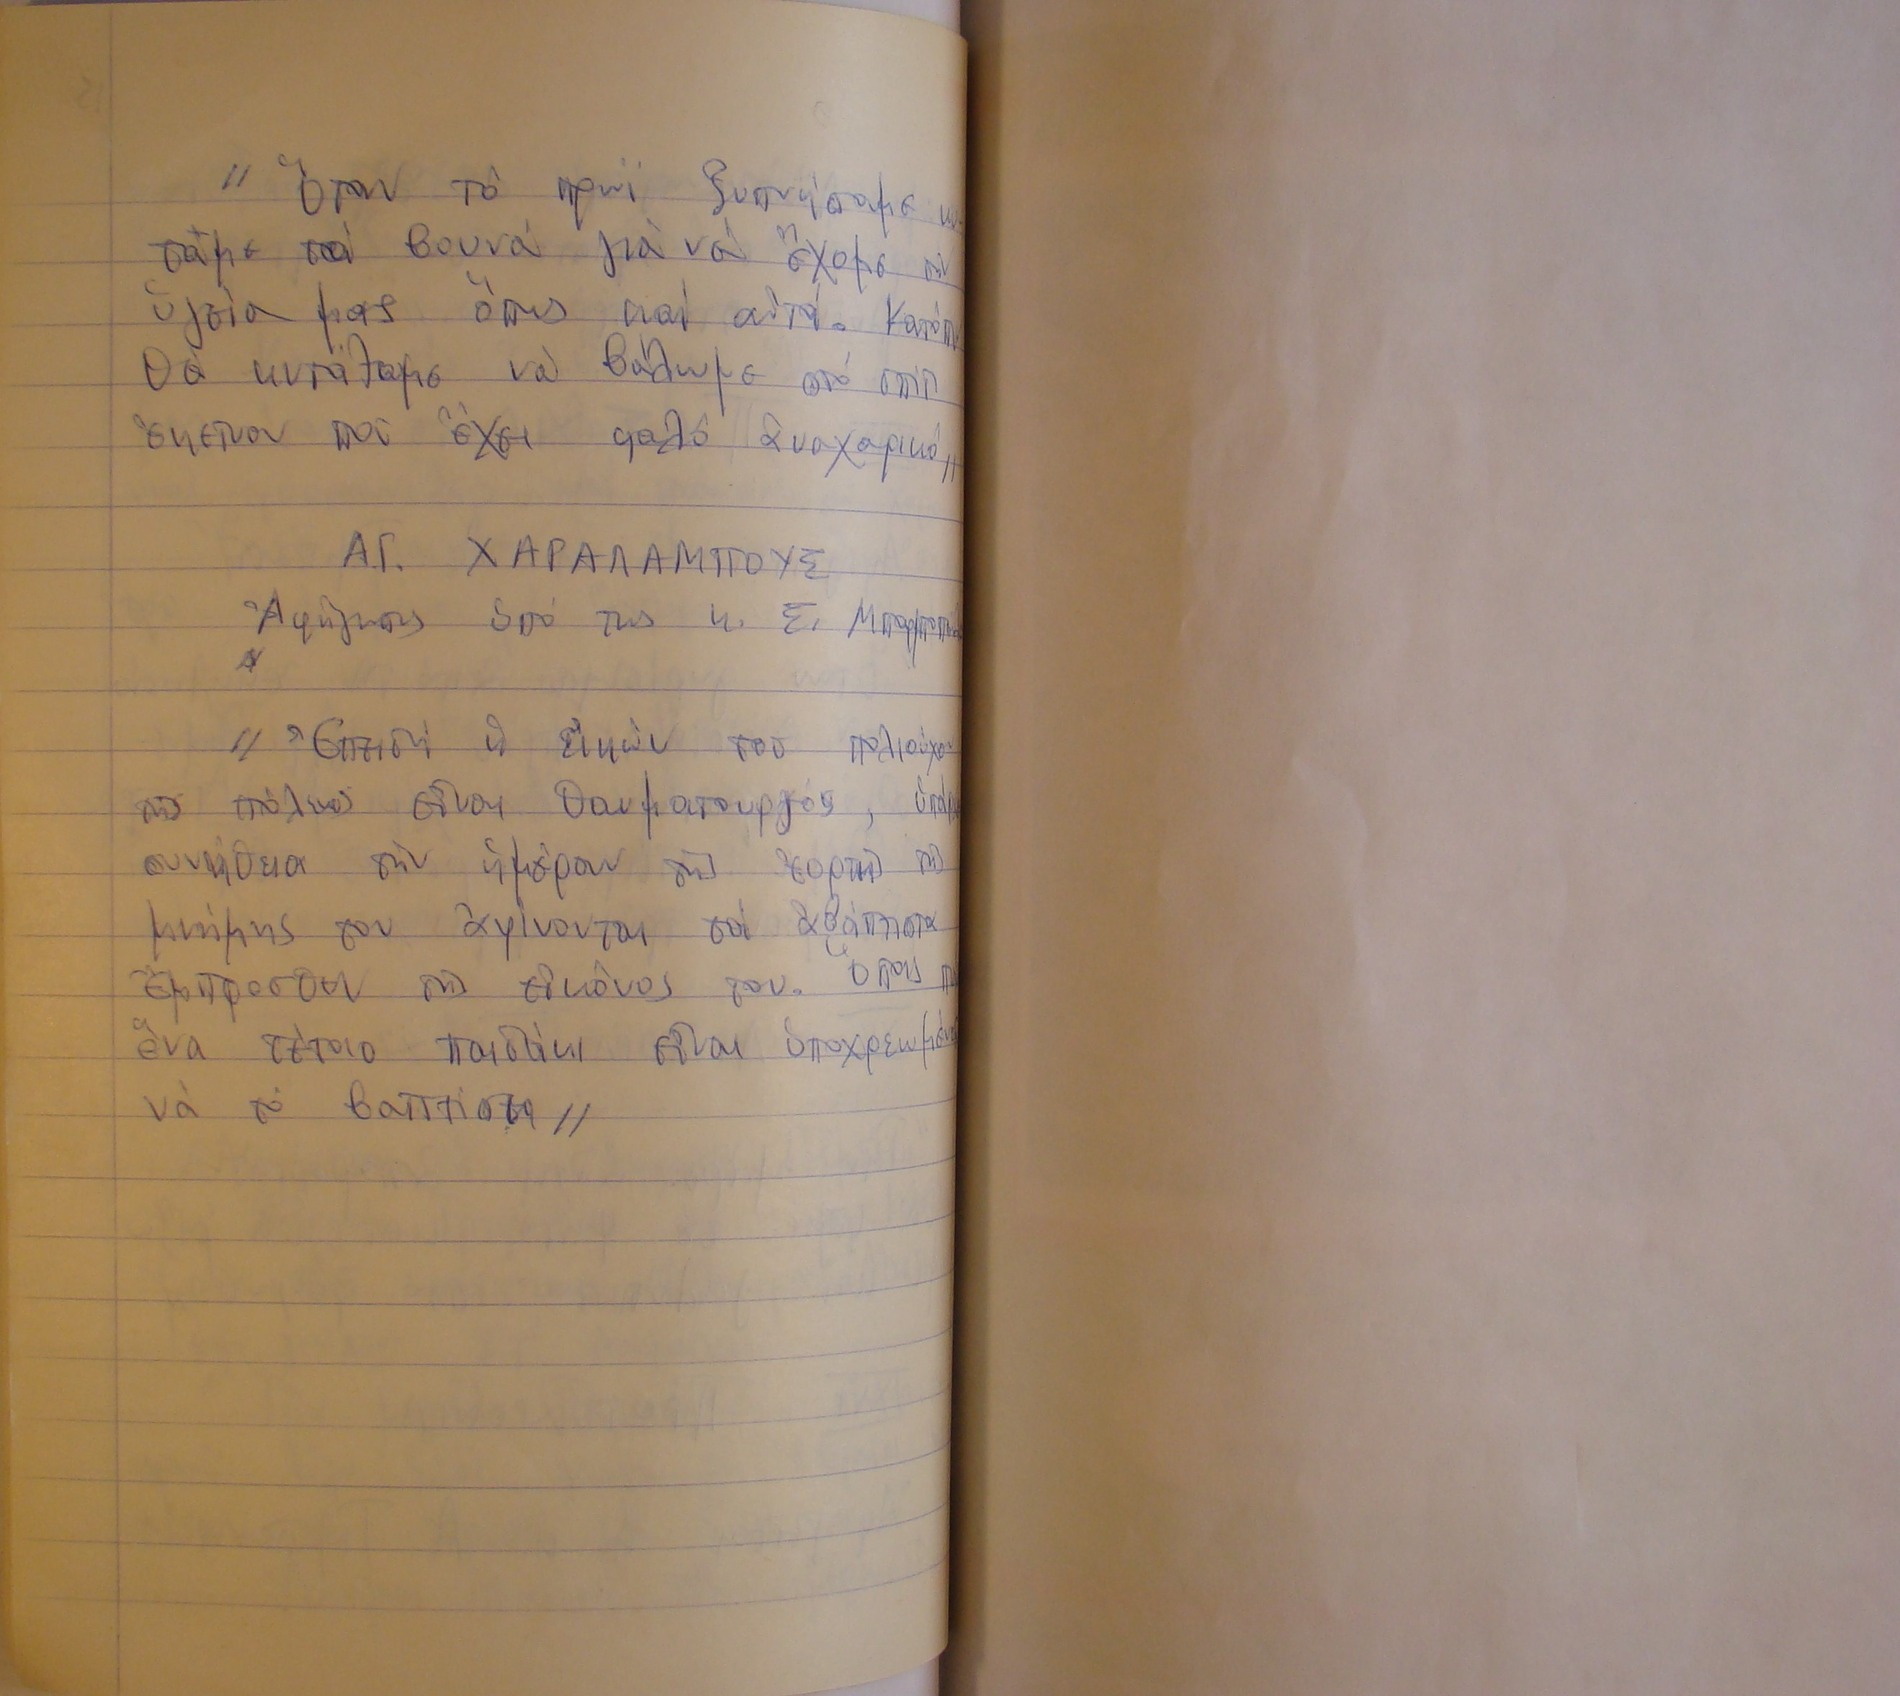 " Ὅταν τό πρωί ξυπνήσαμε κυ-
τάμε τά βουνά γιά νά ἔχομε τήν
ὑγεία μας ὅπως καί αὐτά. Κατόπιν
Θά κυτάξαμε νά βάλωμε στό σπίτι
ἐκεῖνον πού ἔχει καλό
ΑΓ. ΧΑΡΑΛΑΜΠΟΥΣ
Ἀφήγησις ὑπό της κ. Σ.
" Ἐπειδή ἡ εἰκών του πολιούχου
τῆς πόλεως εἶναι θαυματουργός,
συνήθεια τήν ἡμέραν τῆς ἑορτῆς τῆς
μνήμης του ἀφίνονται τά ἀβάπτιστα
ἔμπροσθεν τῆς εἰκόνος του. Ὅποιος
ἕνα τέτοιο παιδάκι εἶναι ὑποχρεωμένος
νά τό βαπτίση "